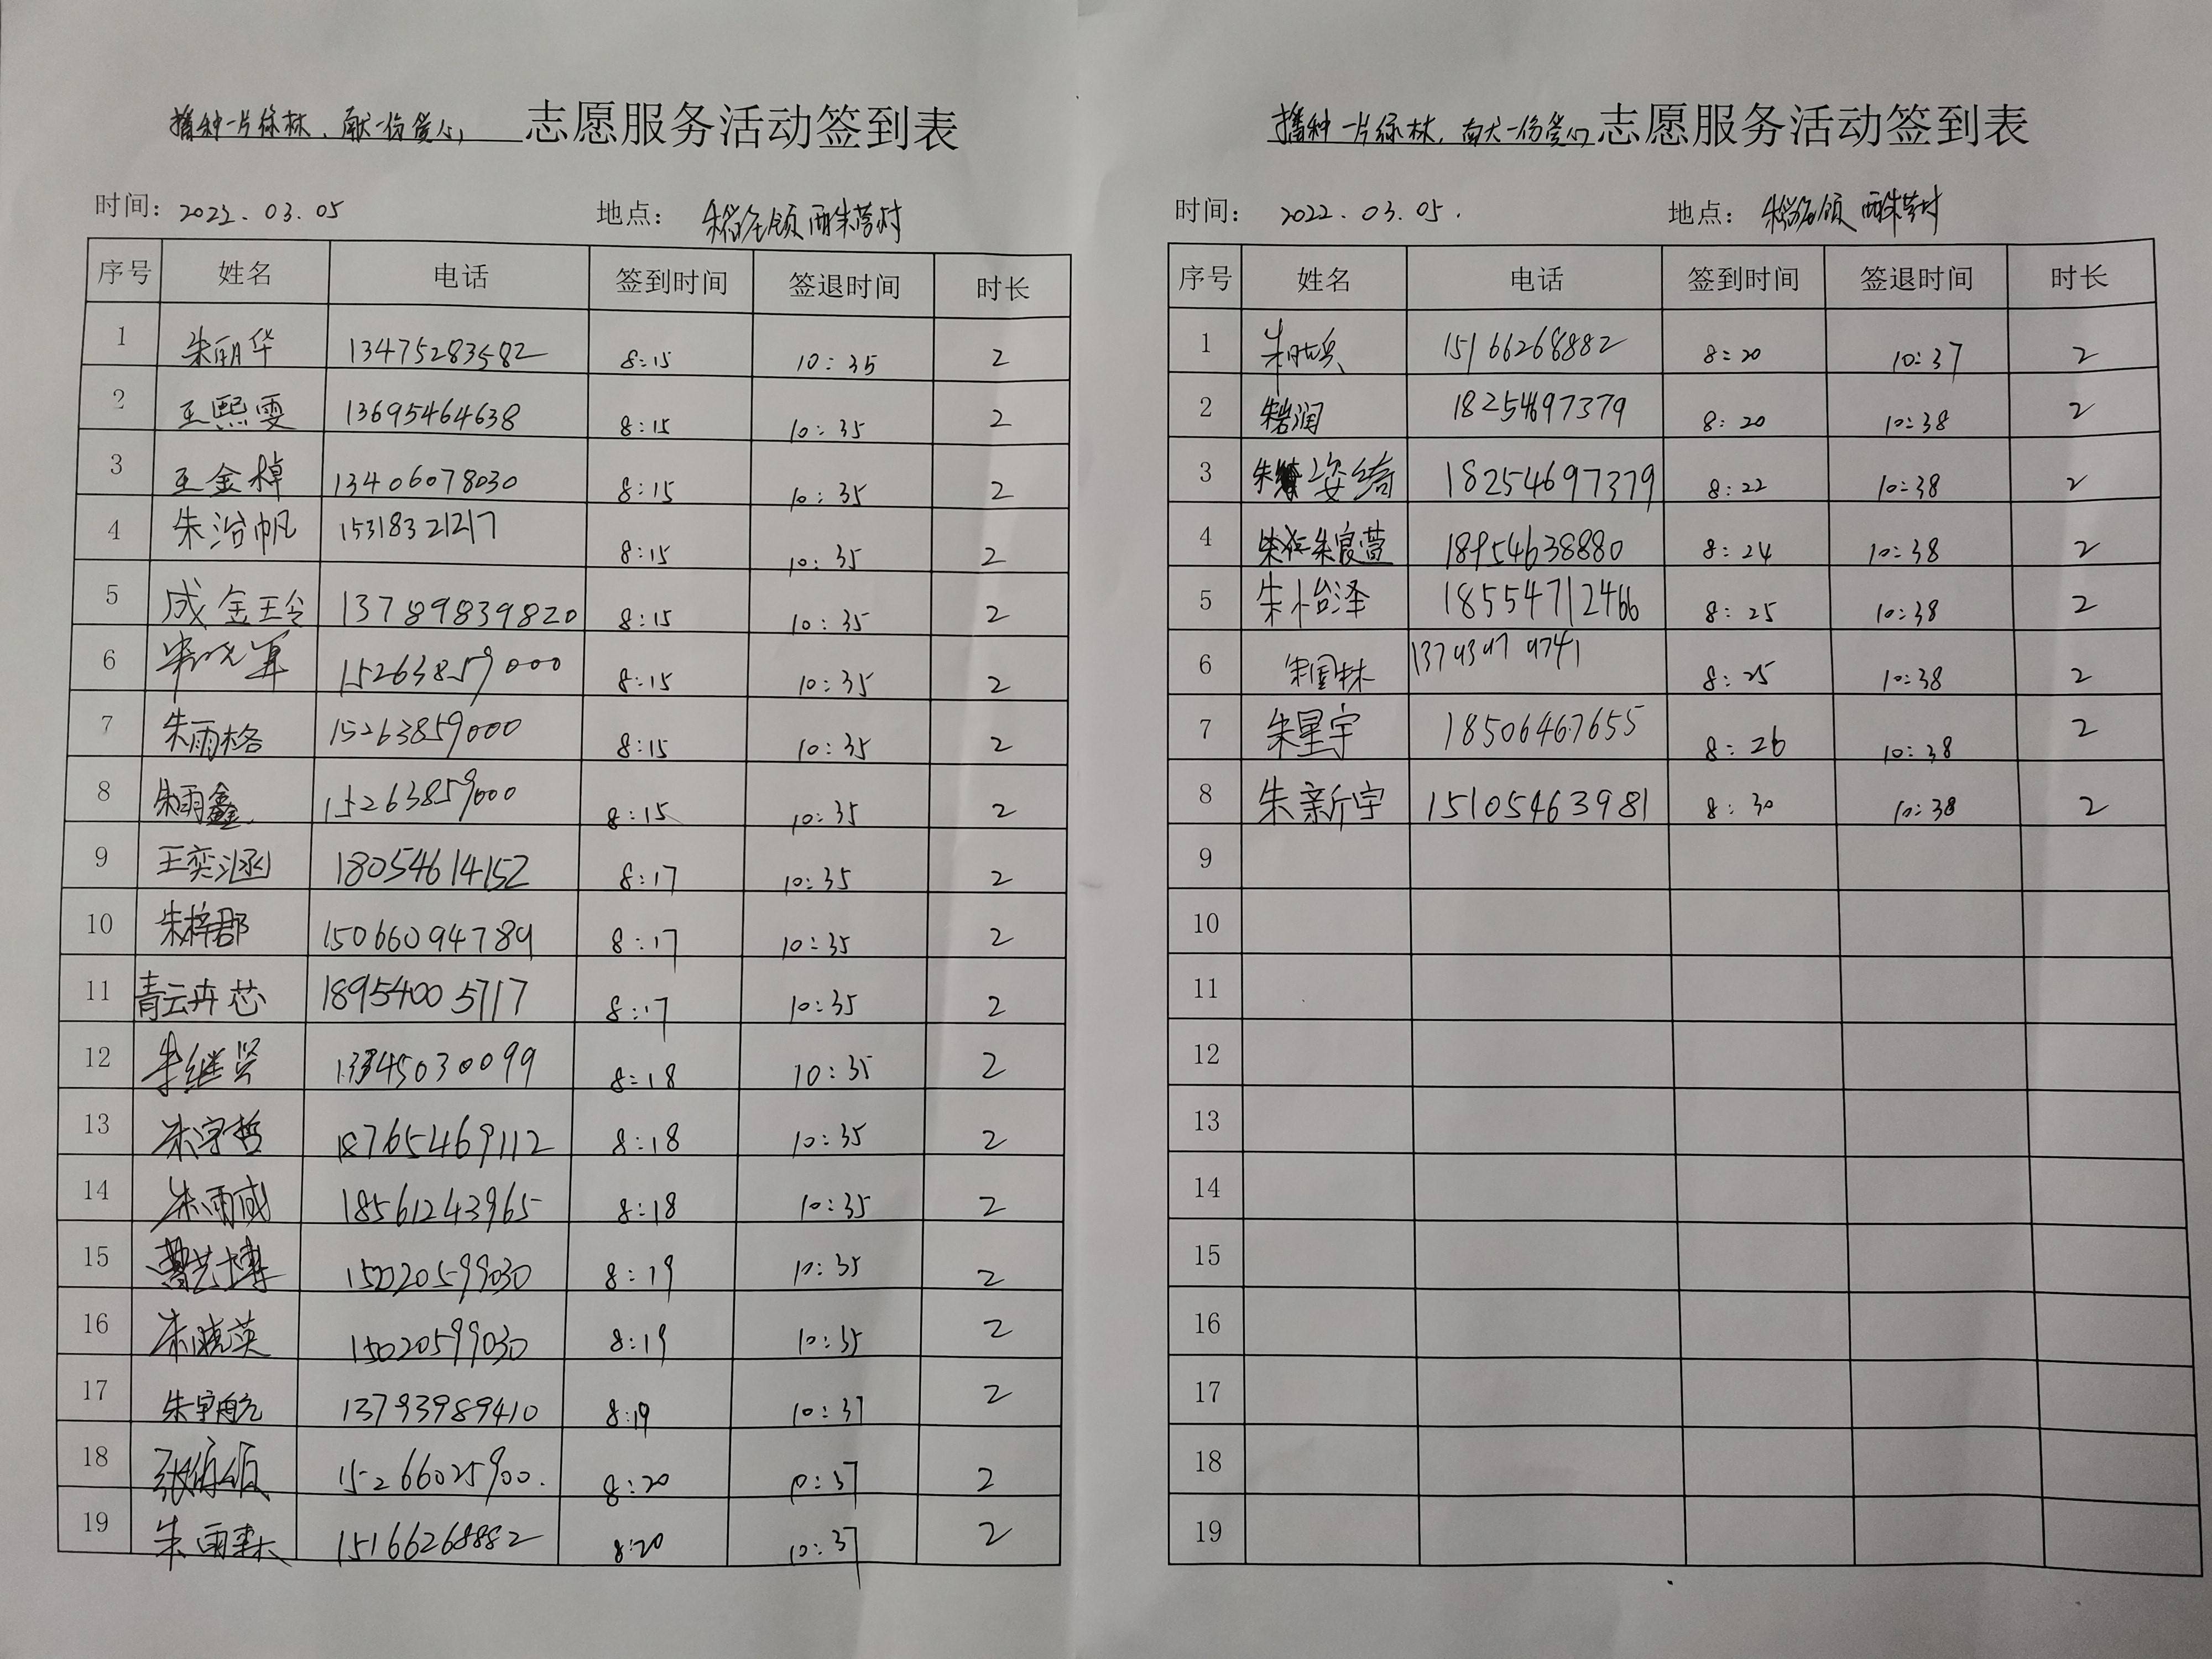 播种一片绿林,献一份爱心 志愿服务活动签到表
时间: 2022.03.05 地点: 稻庄镇西朱营村
序号 姓名 电话 签到时间 签退时间 时长
1 朱丽华 13475283582 8:15 10:35 2
2 王熙雯 13695464638 8:15 10:35 2
3 王金棹 13406078030 8:15 10:35 2
4 朱浴帆 15318321217 8:15 10:35 2
5 成金玲 13789839820 8:15 10:35 2
6 15263859000 8:15 10:35 2
7 朱雨格 15263859000 8:15 10:35 2
8 朱雨鑫 15263859000 8:15 10:35 2
9 王奕涵 18054614152 8:17 10:35 2
10 朱梓郡 15066094789 8:17 10:35 2
11 青云卉芯 18954005717 8:17 10:35 2
12 朱继贤 13345030099 8:18 10:35 2
13 朱宇哲 18765469112 8:18 10:35 2
14 朱雨成 18561243965 8:18 10:35 2
15 曹艺博 15020599030 8:19 10:35 2
16 朱晓英 15020599030 8:19 10:35 2
17 朱宇航 13793989410 8:19 10:37 2
18 15266025900. 8:20 10:37 2
19 朱雨霖 15166268882 8:20 10:37 2
播种一片绿林,献一份爱心 志愿服务活动签到表
时间: 2022.03.05. 地点: 稻庄镇 西朱营村
序号 姓名 电话 签到时间 签退时间 时长
1 15166268882 8:20 10:37 2
2 朱岩润 18254697379 8:20 10:38 2
3 朱姿绮 18254697379 8:22 10:38 2
4 朱宸萱 18954638880 8:24 10:38 2
5 朱怡泽 18554712466 8:25 10:38 2
6 朱国林 13793979741 8:25 10:38 2
7 朱星宇 18506467655 8:26 10:38 2
8 朱新宇 15105463981 8:30 10:38 2
9
10
11
12
13
14
15
16
17
18
19